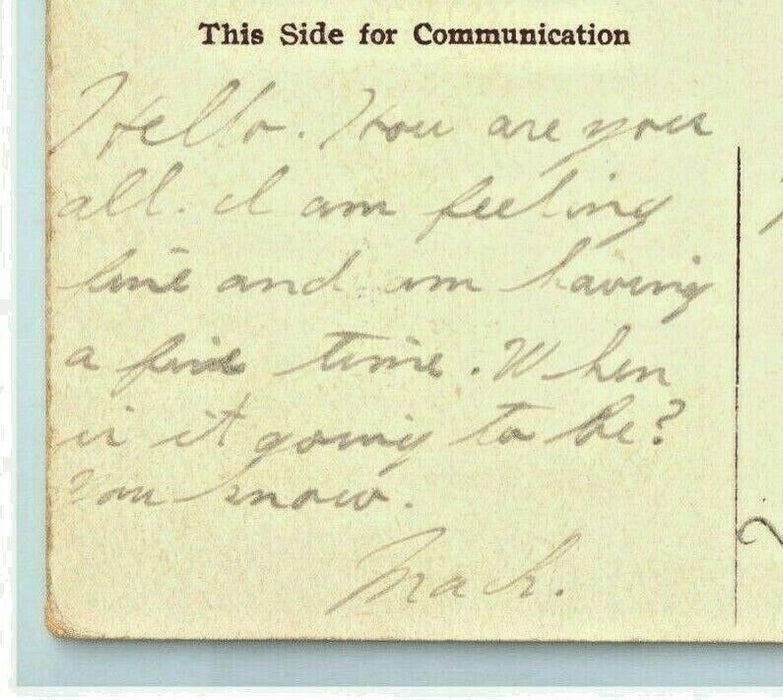 This Side for Communication
Hello. How are you
all. I am feeling
fine and am having
a fine time. When
is it going to be?
You know.
Mack.